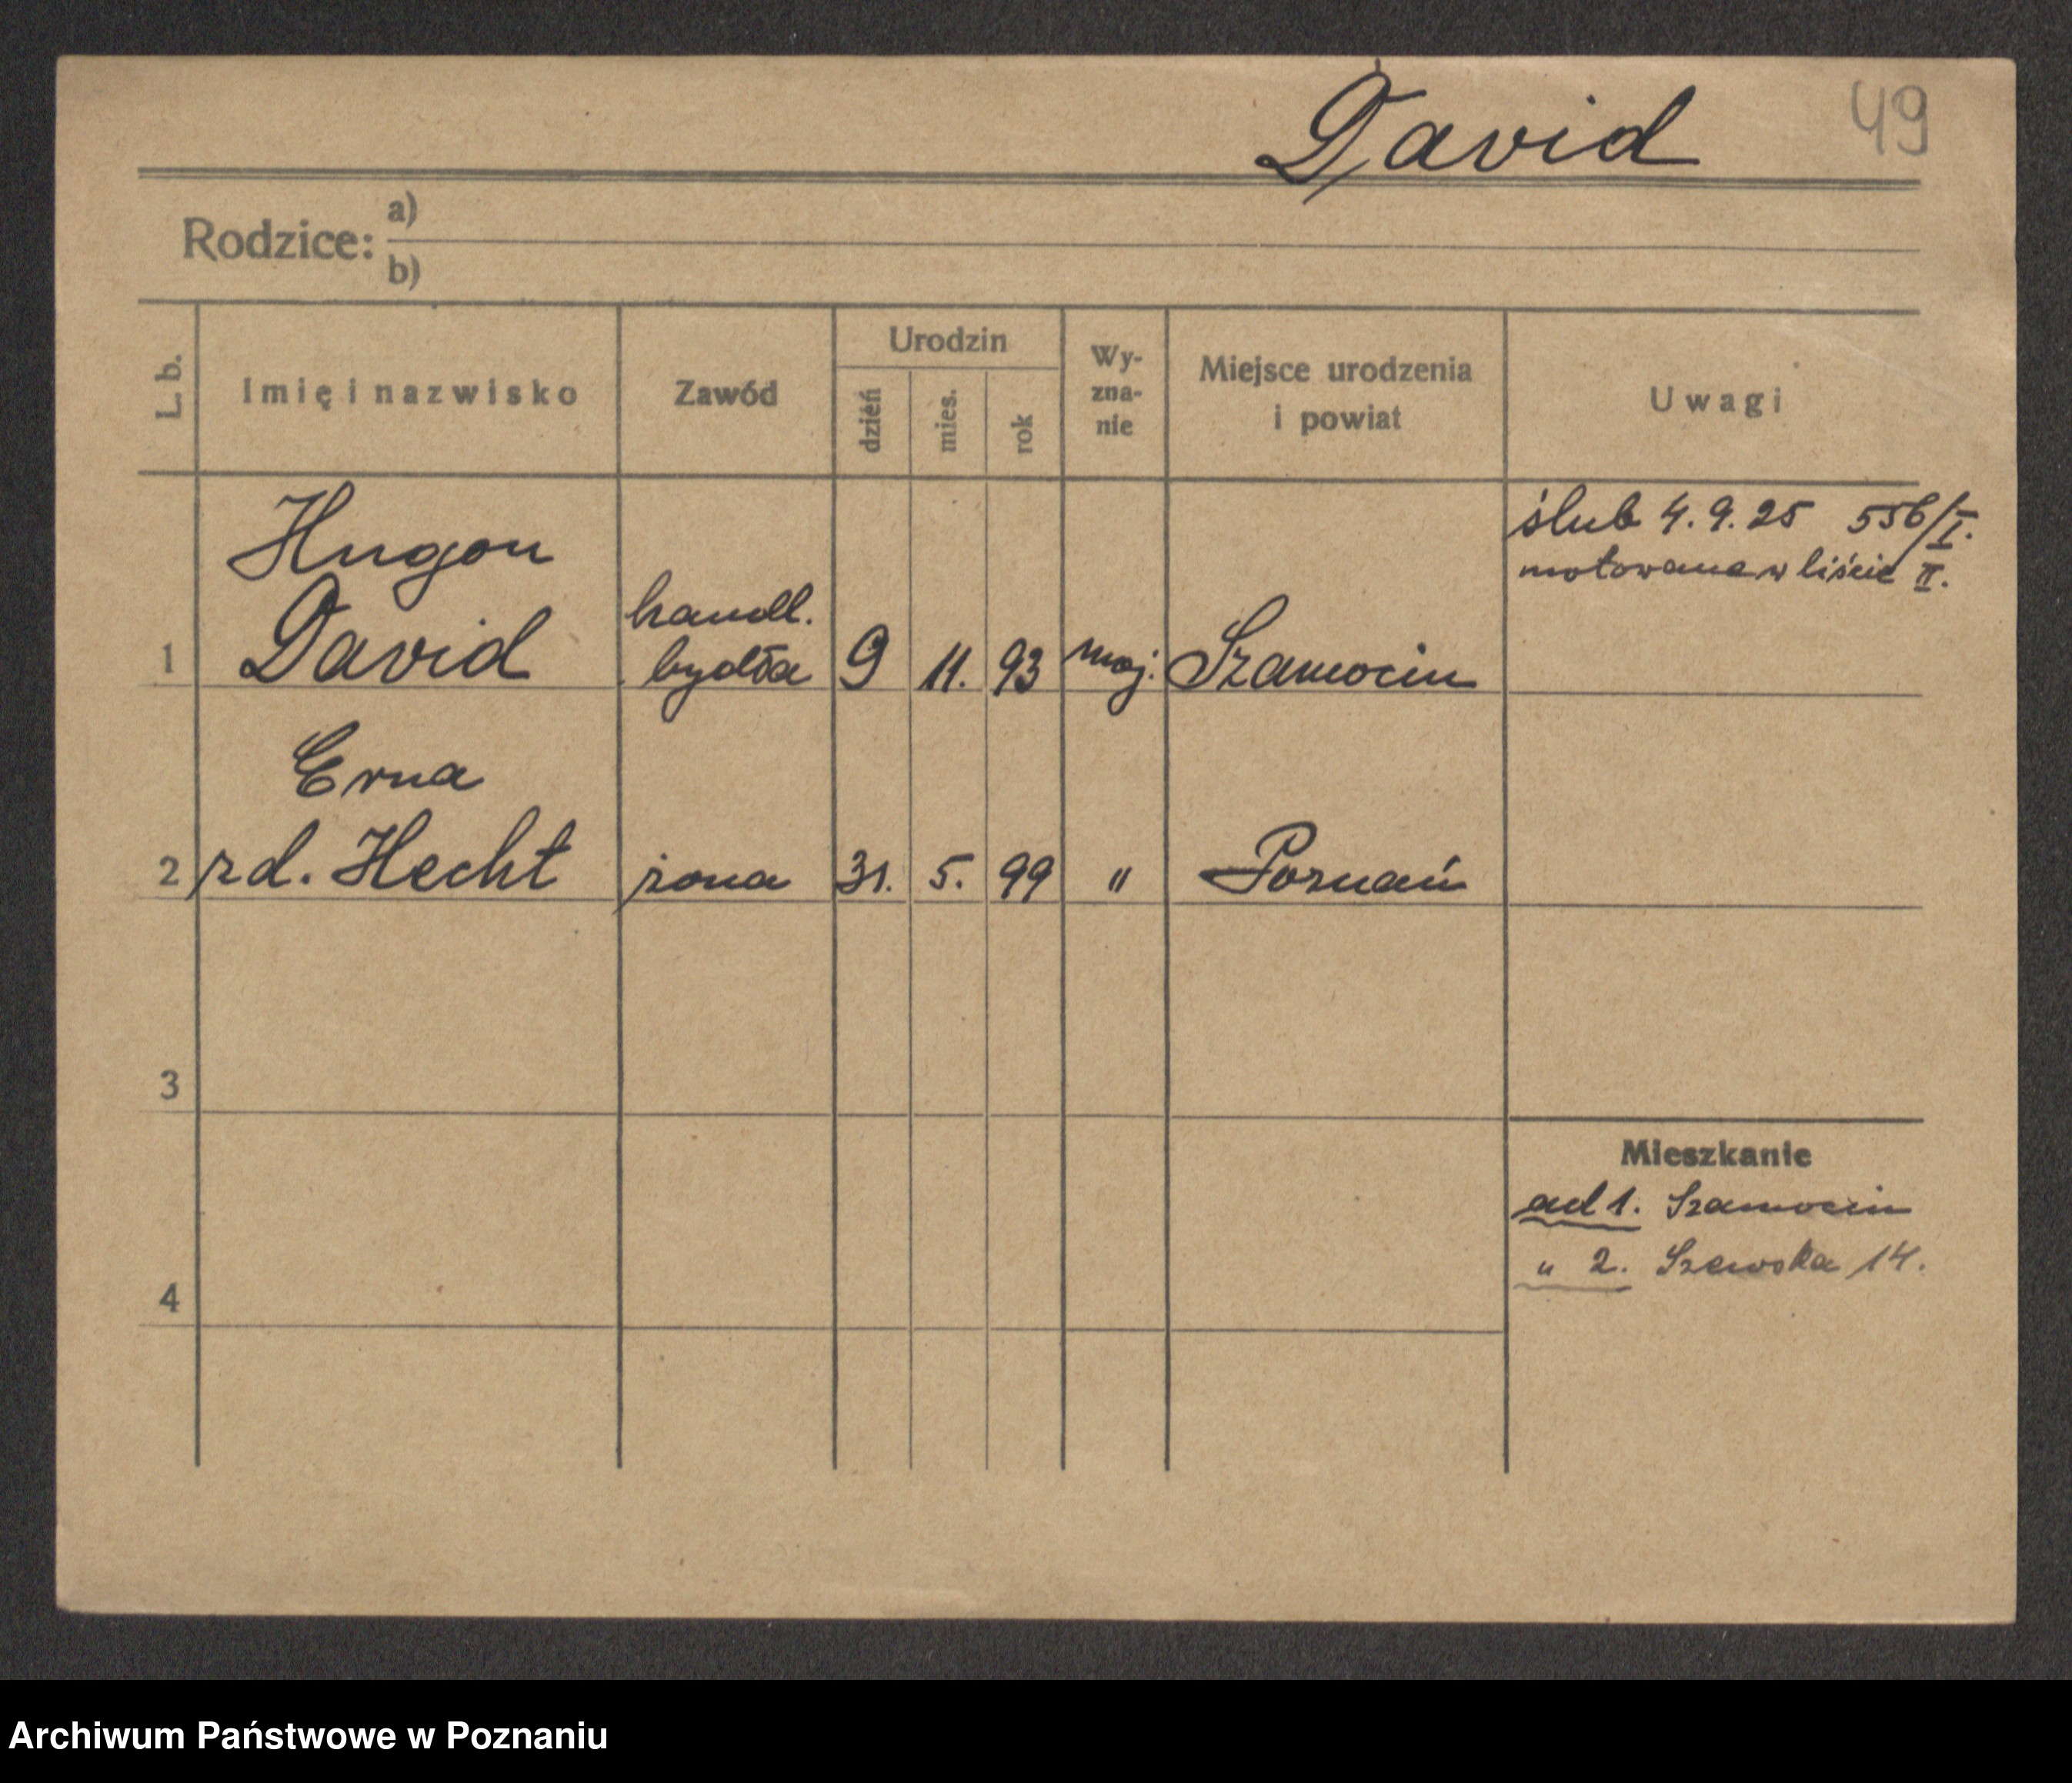 David 49
Rodzice: a)
b)
L. b. Imię i nazwisko Zawód Urodzin dzień mies. rok Wy-zna-nie Miejsce urodzenia i powiat Uwagi
ślub 4.9.25 556/I.
notowane w liście II.
Hugon
David handl.
1 bydła 9 11. 93 moj. Szamocin
Erna
2 rd. Hecht żona 31. 5. 99 " Poznań
3
Mieszkanie
ad 1. Szamocin
" 2. Szewska 14.
4
Archiwum Państwowe w Poznaniu